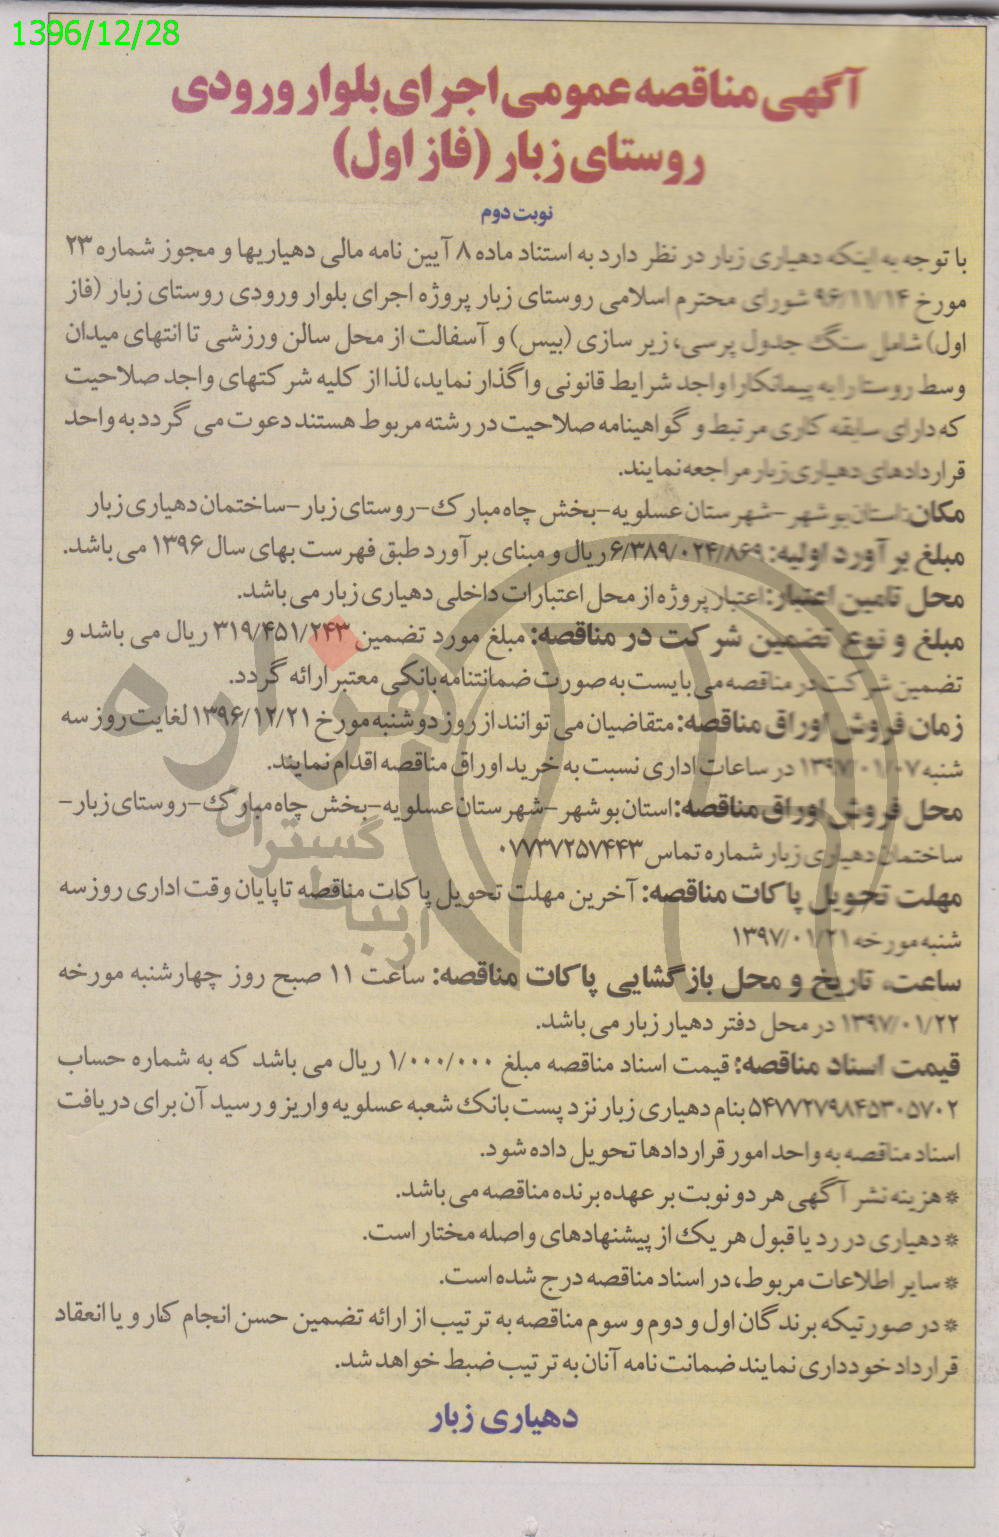 1396/12/28
آگهی مناقصه عمومی اجرای بلوار ورودی
روستای زبار (فاز اول)
نوبت دوم
با توجه به اینکه دهیاری زبار در نظر دارد به استناد ماده ۸ آیین نامه مالی دهیاریها و مجوز شماره ۲۳
مورخ ۹۶/۱۱/۱۴ شورای محترم اسلامی روستای زبار پروژه اجرای بلوار ورودی روستای زبار (فاز
اول) شامل سنگ جدول پرسی، زیر سازی (بیس) و آسفالت از محل سالن ورزشی تا انتهای میدان
وسط روستا را به پیمانکار/ واجد شرایط قانونی واگذار نماید، لذا از کلیه شرکتهای واجد صلاحیت
که دارای سابقه کاری مرتبط و گواهینامه صلاحیت در رشته مربوط هستند دعوت می گردد به واحد
قراردادهای دهیاری زبار مراجعه نمایند.
مکان: استان بوشهر -شهرستان عسلویه-بخش چاه مبارک-روستای زبار-ساختمان دهیاری زبار
مبلغ بر آورد اولیه: ۶/۳۸۹/۰۲۴/۸۶۹ ریال و مبنای بر آورد طبق فهرست بهای سال ۱۳۹۶ می باشد.
محل تامین اعتبار: اعتبار پروژه از محل اعتبارات داخلی دهیاری زبار می باشد.
مبلغ و نوع تضمین شرکت در مناقصه: مبلغ مورد تضمین ۳۱۹/۴۵۱/۲۴۳ ریال می باشد و
تضمین شرکت در مناقصه می بایست به صورت ضمانتنامه بانکی معتبر ارائه گردد.
زمان فروش اوراق مناقصه: متقاضیان می توانند از روز دوشنبه مورخ ۱۳۹۶/۱۲/۲۱ لغایت روز سه
شنبه ۱۳۹۷/۰۱/۰۷ در ساعات اداری نسبت به خرید اوراق مناقصه اقدام نمایند.
محل فروش اوراق مناقصه: استان بوشهر -شهرستان عسلویه-بخش چاه مبارک-روستای زبار-
ساختمان دهیاری زبار شماره تماس ۰۷۷۳۷۲۵۷۴۴۳
مهلت تحویل پاکات مناقصه: آخرین مهلت تحویل پاکات مناقصه تا پایان وقت اداری روز سه
شنبه مورخه ۱۳۹۷/۰۱/۲۱
ساعت، تاریخ و محل بازگشایی پاکات مناقصه: ساعت ۱۱ صبح روز چهارشنبه مورخه
۱۳۹۷/۰۱/۲۲ در محل دفتر دهیار زبار می باشد.
قیمت اسناد مناقصه: قیمت اسناد مناقصه مبلغ ۱/۰۰۰/۰۰۰ ریال می باشد که به شماره حساب
۵۴۷۷۲۷۹۸۴۵۳۰۵۷۰۲ بنام دهیاری زبار نزد پست بانک شعبه عسلویه واریز و رسید آن برای دریافت
اسناد مناقصه به واحد امور قراردادها تحویل داده شود.
* هزینه نشر آگهی هر دو نوبت بر عهده برنده مناقصه می باشد.
* دهیاری در رد یا قبول هر یک از پیشنهادهای واصله مختار است.
* سایر اطلاعات مربوط، در اسناد مناقصه درج شده است.
* در صورتیکه برندگان اول و دوم و سوم مناقصه به ترتیب از ارائه تضمین حسن انجام کار و یا انعقاد
قرارداد خودداری نمایند ضمانت نامه آنان به ترتیب ضبط خواهد شد.
دهیاری زبار